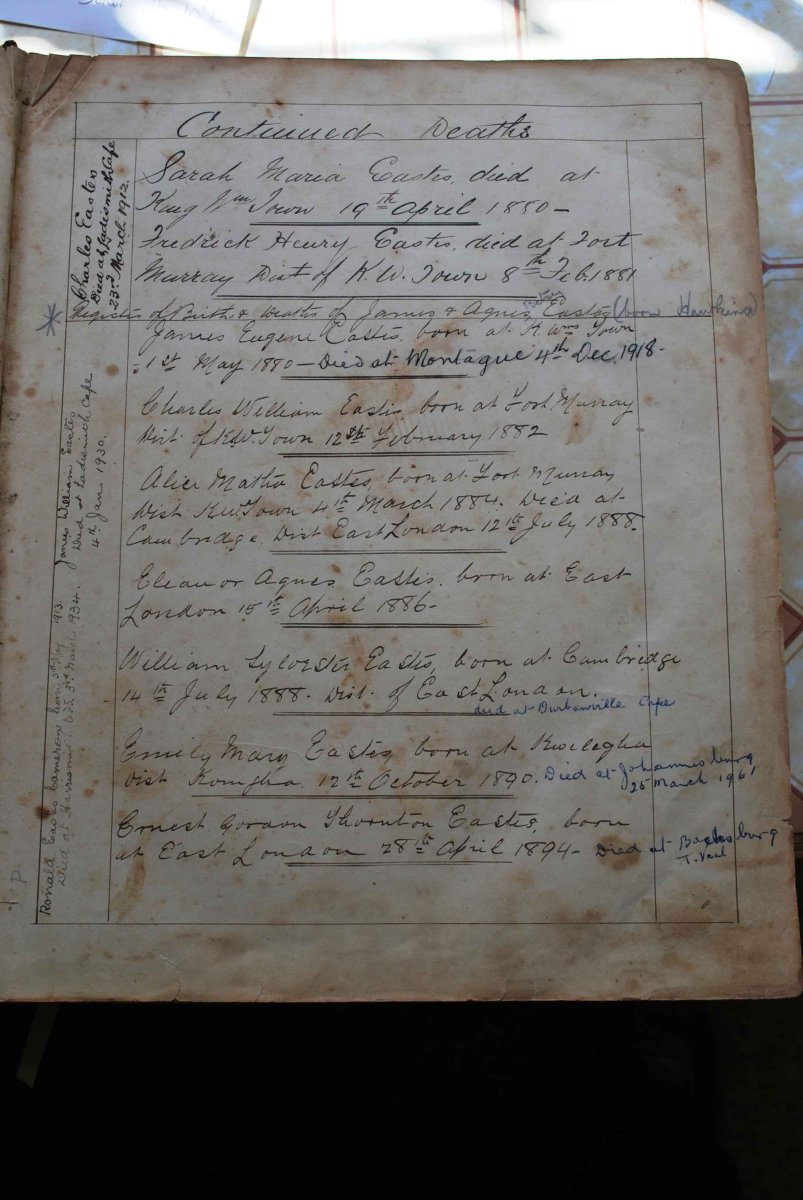 Continued Deaths
Sarah Maria Eastes, died at
King Wm Town 19th April 1880 –
Fredrick Henry Eastes, died at Fort
Murray Dist of K.W. Town 8th Feb. 1881
Register of Birth & Deaths of James & Agnes Eastes (born Hawkins)
James Eugene Eastes, born at K. Wms Town
1st May 1880 – Died at Montague 4th Dec. 1918.
Charles William Eastes, born at Fort Murray
Dist. of K.W. Town 12th February 1882
Alice Matha Eastes, born at Fort Murray
Dist. K.W. Town 4th March 1884. Died at
Cambridge. Dist East London 12th July 1888.
Eleanor Agnes Eastes, born at East
London 15th April 1886 –
William Sylvester Eastes, born at Cambridge
14th July 1888. Dist. of East London.
died at Durbanville Cape
Emily Mary Eastes, born at Kwelegha
Dist Komgha. 12th October 1890. Died at Johannesburg
25 March 1961
Ernest Gordon Thornton Eastes, born
at East London 28th April 1894 – Died at Boksburg
T. Vaal
Charles Eastes
Died at Ladismith Cape
23rd March 1912.
James William Eastes
Died at Ladismith Cape
4th Jan. 1930.
Ronald Eastes Cameron born May 1913.
Died at Harrismith, 3rd March 1934.